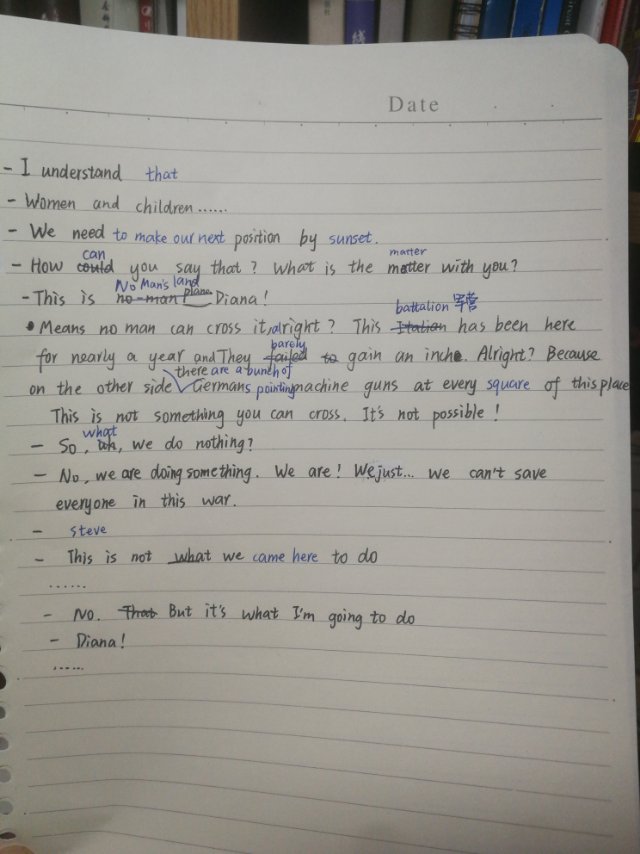 Date
- I understand that
- Women and children......
- We need to make our next position by sunset.
can matter
- How could you say that? What is the motter with you?
No Man's land
- This is no-man plane Diana!
battalion 军营
• Means no man can cross it, alright? This Italian has been here
barely
for nearly a year and They failed to gain an inch. Alright? Because
there are a bunch of
on the other side Germans pointing machine guns at every square of this place
This is not something you can cross. It's not possible!
what
- So, uh, we do nothing?
- No, we are doing something. We are! We just... we can't save
everyone in this war.
- Steve
- This is not what we came here to do
......
- No. That But it's what I'm going to do
- Diana!
......